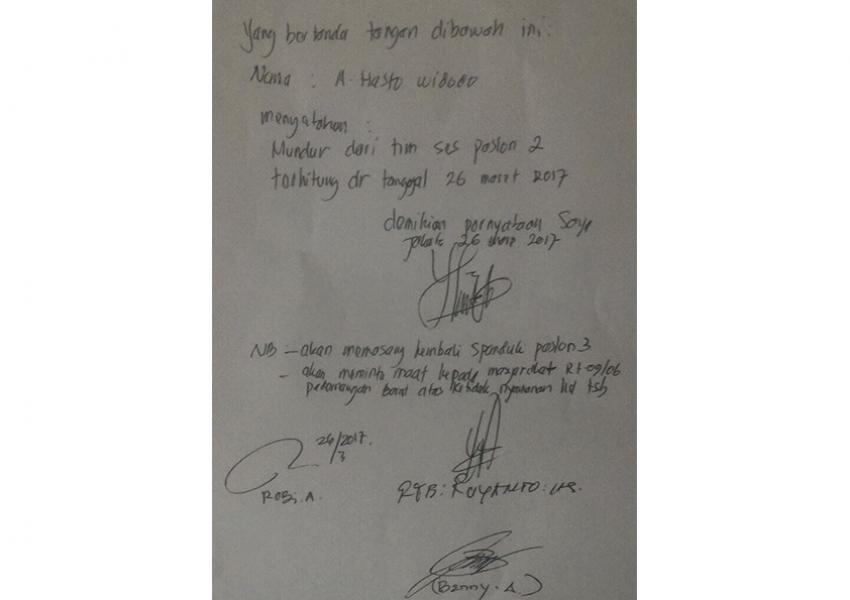 Yang bertanda tangan dibawah ini:
Nama : A. Hasto wibowo
menyatakan :
Mundur dari tim ses paslon 2
terhitung dr tanggal 26 maret 2017
demikian pernyataan Saya
26 2017
NB – akan memasang kembali spanduk paslon 3
– akan meminta maaf kepada masyarakat Rt 09/06
barat atas hal tsb
26/2017.
3
Robi. A.
(Benny. A.)